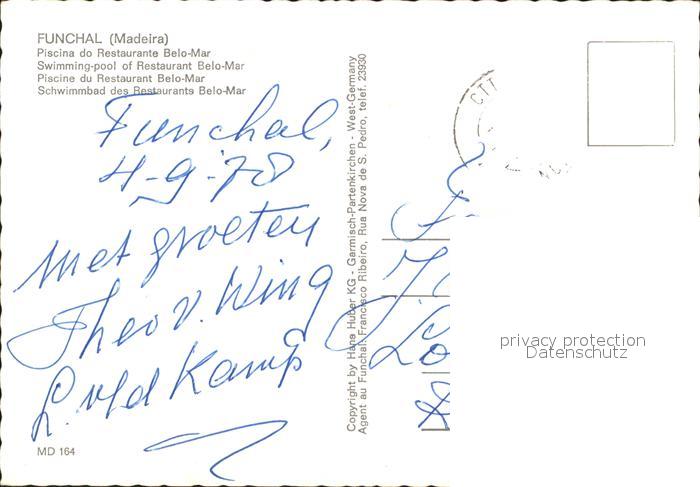 FUNCHAL (Madeira)
Piscina do Restaurante Belo-Mar
Swimming-pool of Restaurant Belo-Mar
Piscine du Restaurant Belo-Mar
Schwimmbad des Restaurants Belo-Mar
Funchal,
4-9-78
met groeten
Theo v. Wing
L. v/d Kamp
MD 164
Copyright by Hans Huber KG - Garmisch-Partenkirchen - West-Germany
Agent au Funchal, Francisco Ribeiro, Rua Nova de S. Pedro, telef. 23930
CTT
privacy protection
Datenschutz